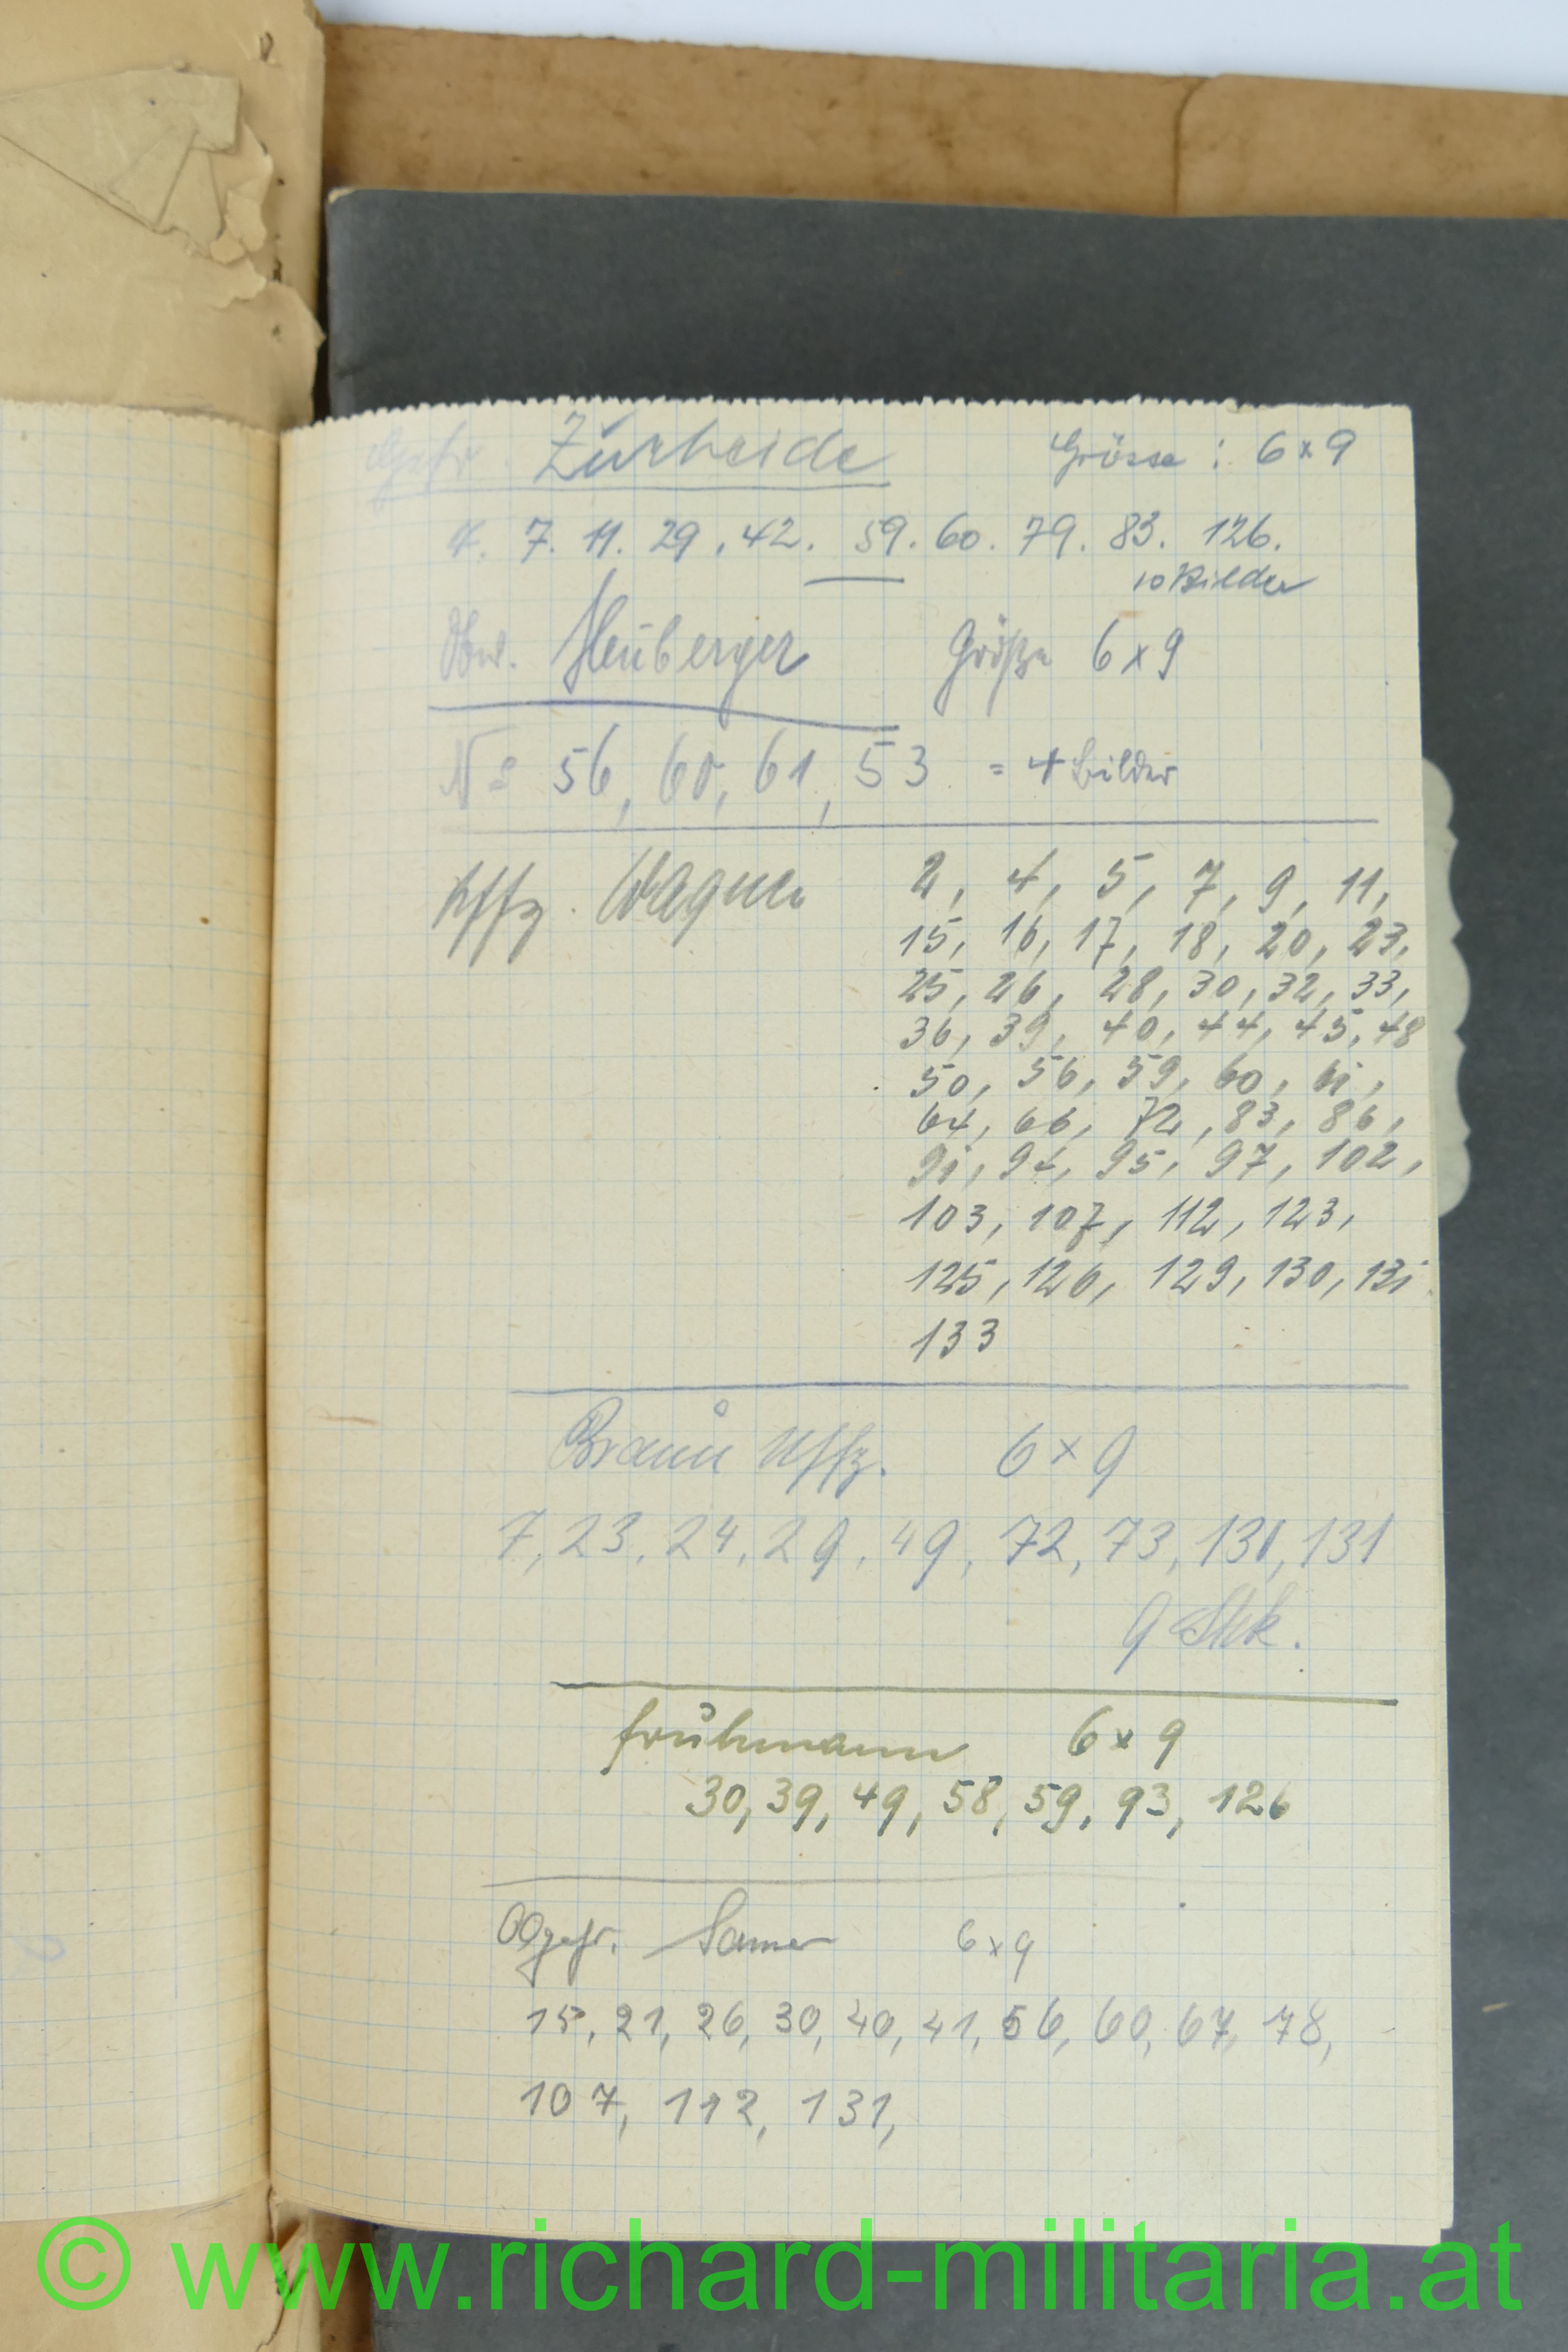 Gefr. Zurheide Grösse : 6 x 9
4. 7. 11. 29. 42. 59. 60. 79. 83. 126.
10 Bilder
Heuberger Größe 6 x 9
No 56, 60, 61, 53 = 4 Bilder
Uffz. Wagner 2, 4, 5, 7, 9, 11,
15, 16, 17, 18, 20, 23,
25, 26, 28, 30, 32, 33,
36, 39, 40, 44, 45, 48
50, 56, 59, 60, 61,
64, 66, 72, 83, 86,
91, 94, 95, 97, 102,
103, 107, 112, 123,
125, 126, 129, 130, 131
133
Braun Uffz. 6 x 9
7, 23, 24, 29, 49, 72, 73, 131, 131
9 Stck.
Frühmann 6 x 9
30, 39, 49, 58, 59, 93, 126
OGgefr. 6 x 9
15, 21, 26, 30, 40, 41, 56, 60, 67, 78,
107, 112, 131,
© www.richard-militaria.at